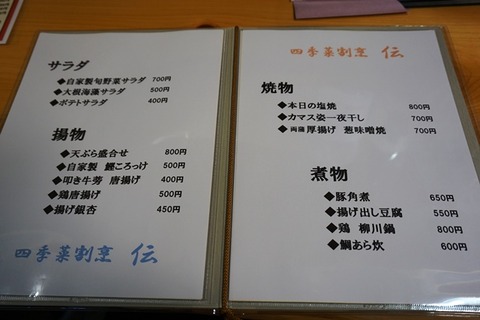 サラダ
◆自家製旬野菜サラダ 700円
◆大根海藻サラダ 500円
◆ポテトサラダ 400円
揚物
◆天ぷら盛合せ 800円
◆自家製 鰹ころっけ 500円
◆叩き牛蒡 唐揚げ 400円
◆鶏唐揚げ 500円
◆揚げ銀杏 450円
四季菜割烹 伝
四季菜割烹 伝
焼物
◆本日の塩焼 800円
◆カマス姿一夜干し 700円
◆両薩厚揚げ 葱味噌焼 700円
煮物
◆豚角煮 650円
◆揚げ出し豆腐 550円
◆鶏 柳川鍋 800円
◆鯛あら炊 600円